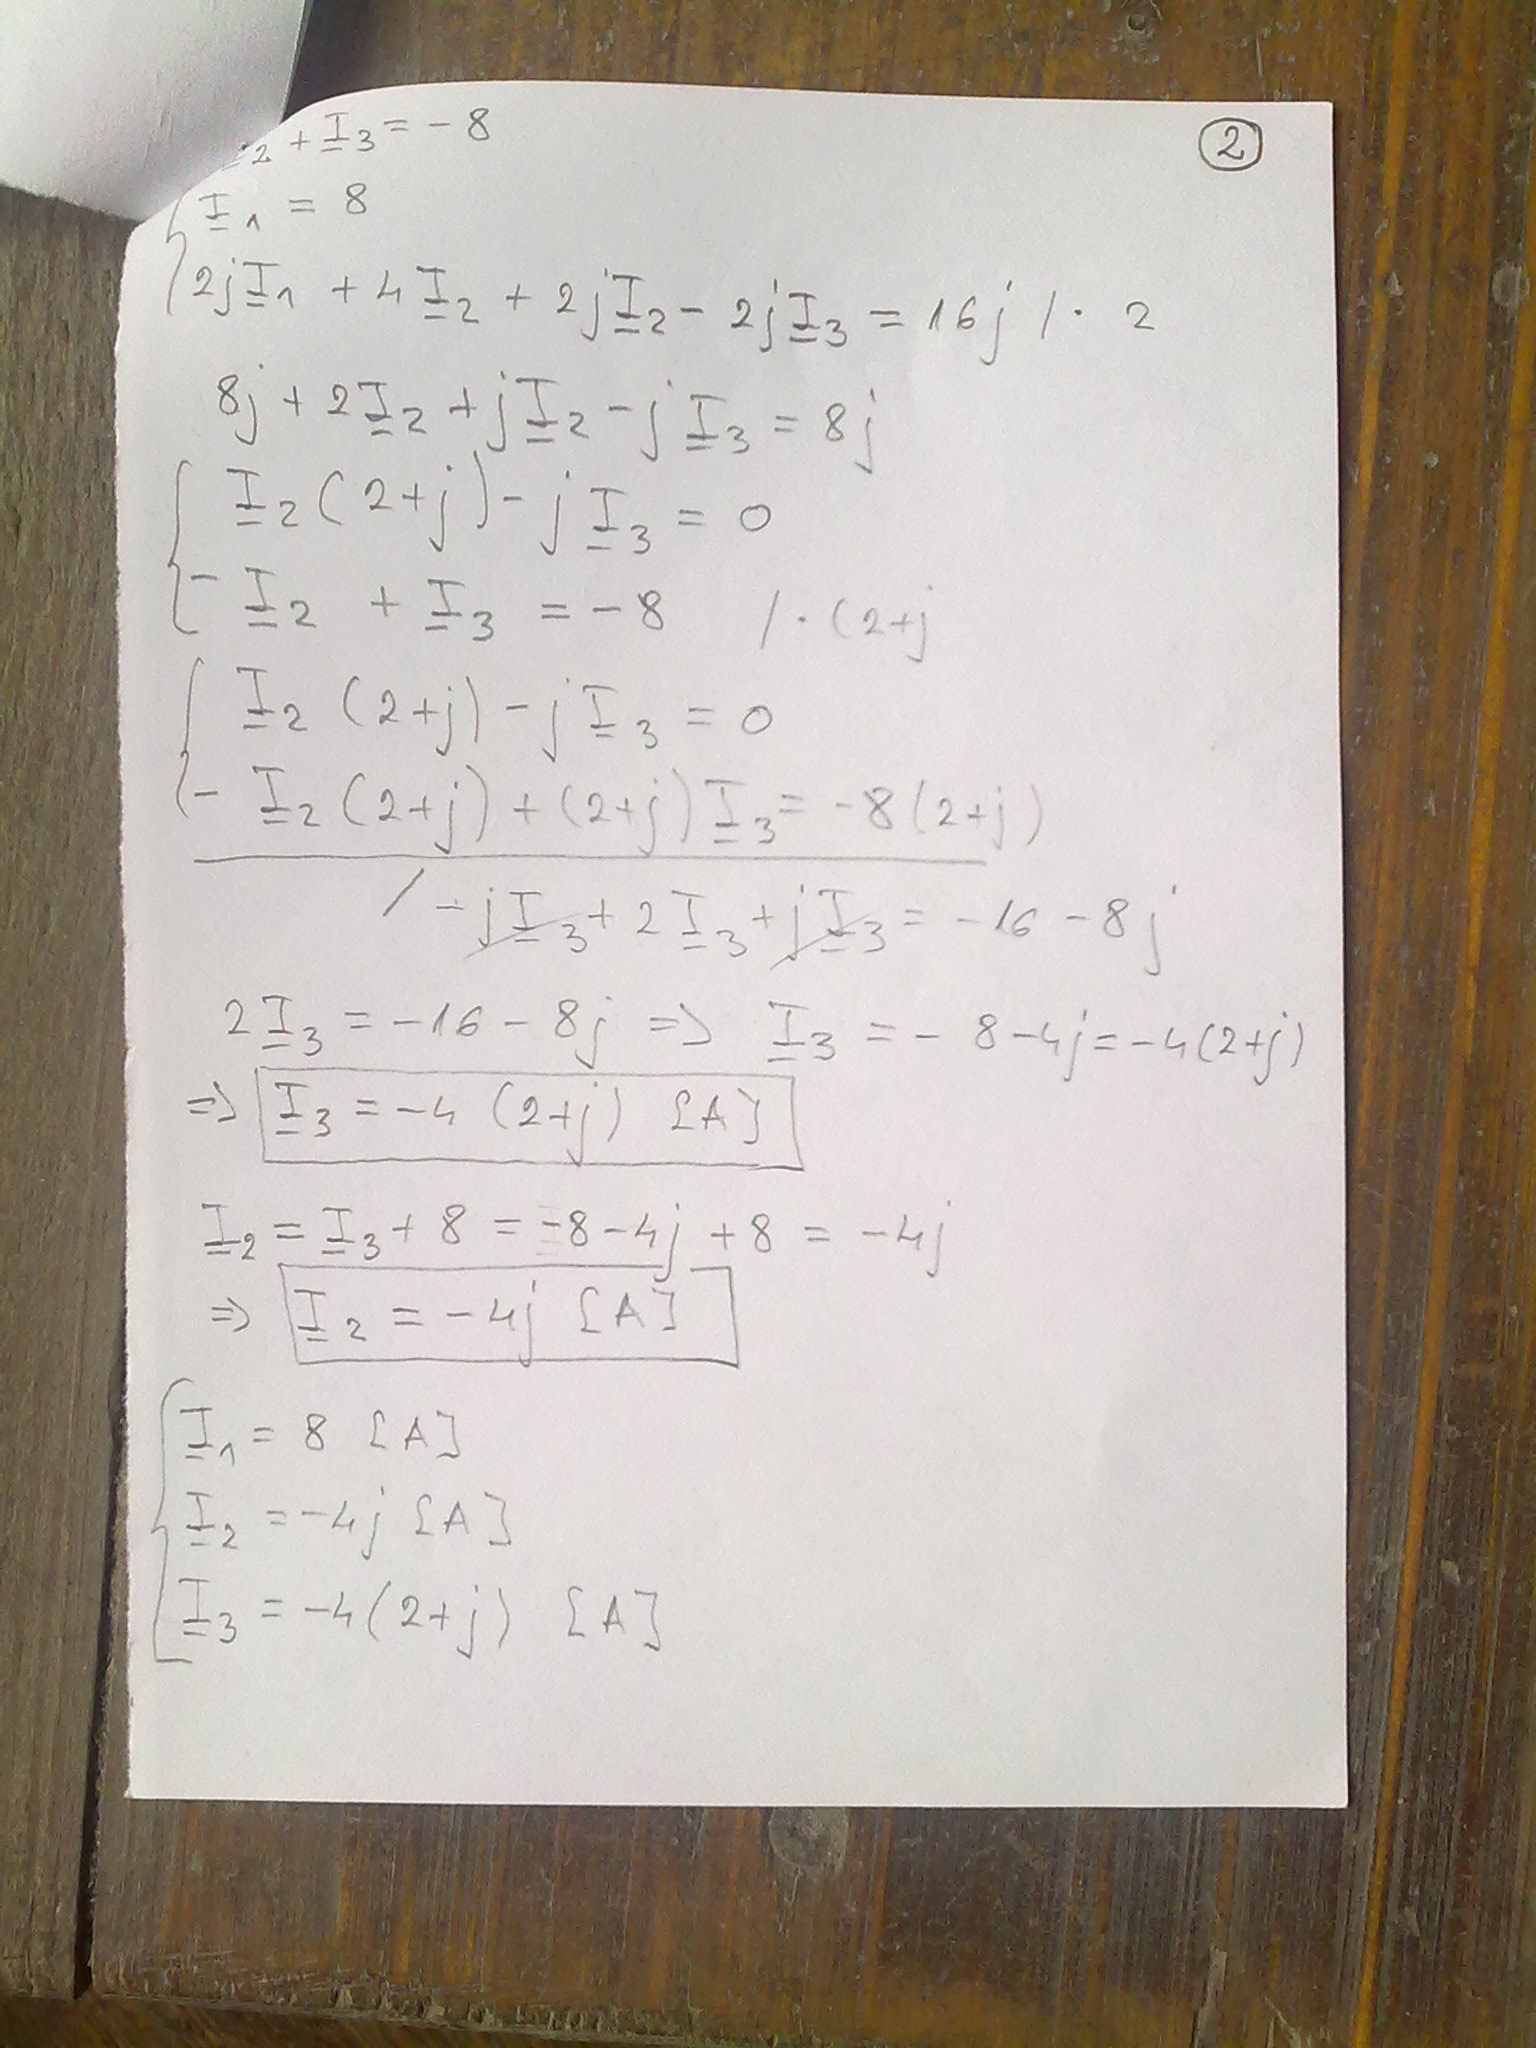 2 + I3 = - 8
②
I1 = 8
2jI1 + 4I2 + 2jI2 - 2jI3 = 16j / · 2
8j + 2I2 + jI2 - jI3 = 8j
I2 (2+j) - jI3 = 0
- I2 + I3 = - 8 / · (2+j
I2 (2+j) - jI3 = 0
- I2 (2+j) + (2+j) I3 = - 8 (2+j)
/ - jI3 + 2I3 + jI3 = - 16 - 8j
2I3 = - 16 - 8j => I3 = - 8 - 4j = - 4 (2+j)
=> I3 = - 4 (2+j) [A]
I2 = I3 + 8 = - 8 - 4j + 8 = - 4j
=> I2 = - 4j [A]
I1 = 8 [A]
I2 = - 4j [A]
I3 = - 4 (2+j) [A]